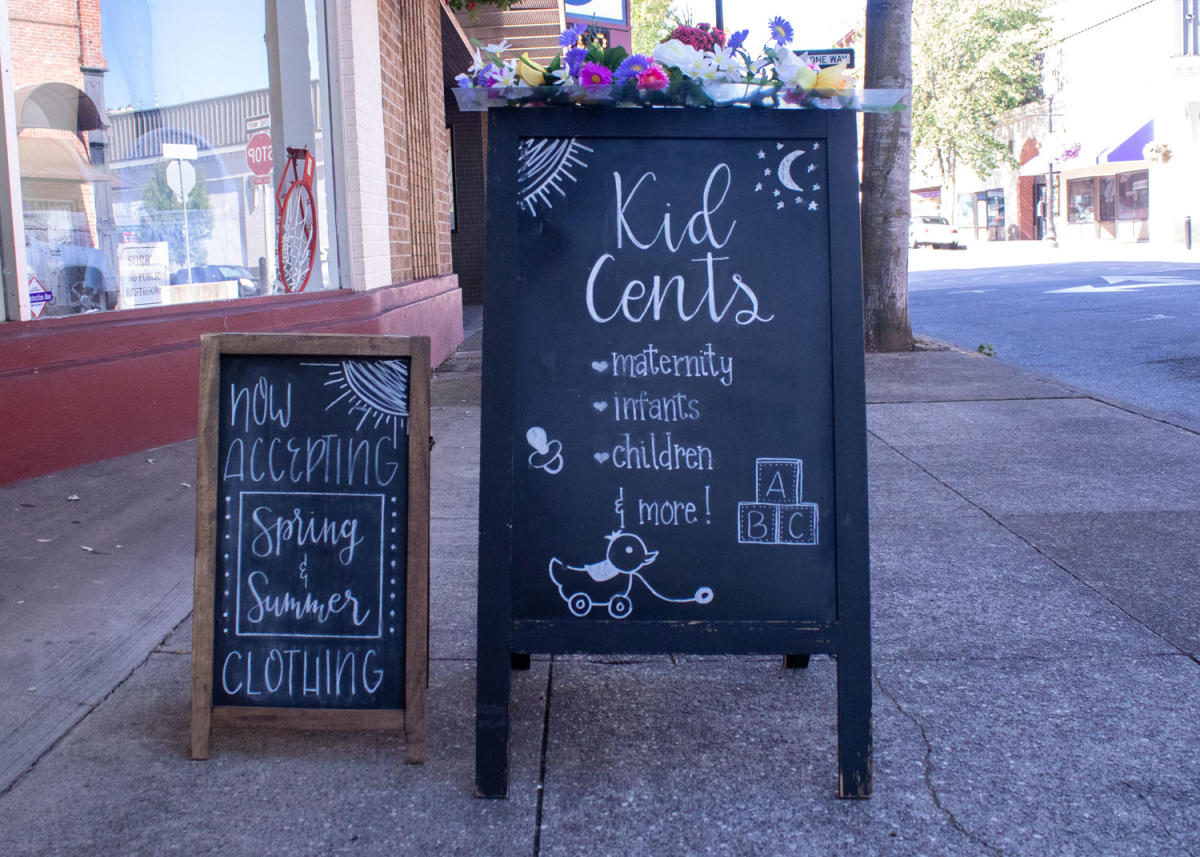 ONE WAY
STOP
SORRY
NO PUBLIC
RESTROOM
Kid
Cents
maternity
infants
children
& more!
A
B C
NOW
ACCEPTING
Spring
&
Summer
CLOTHING